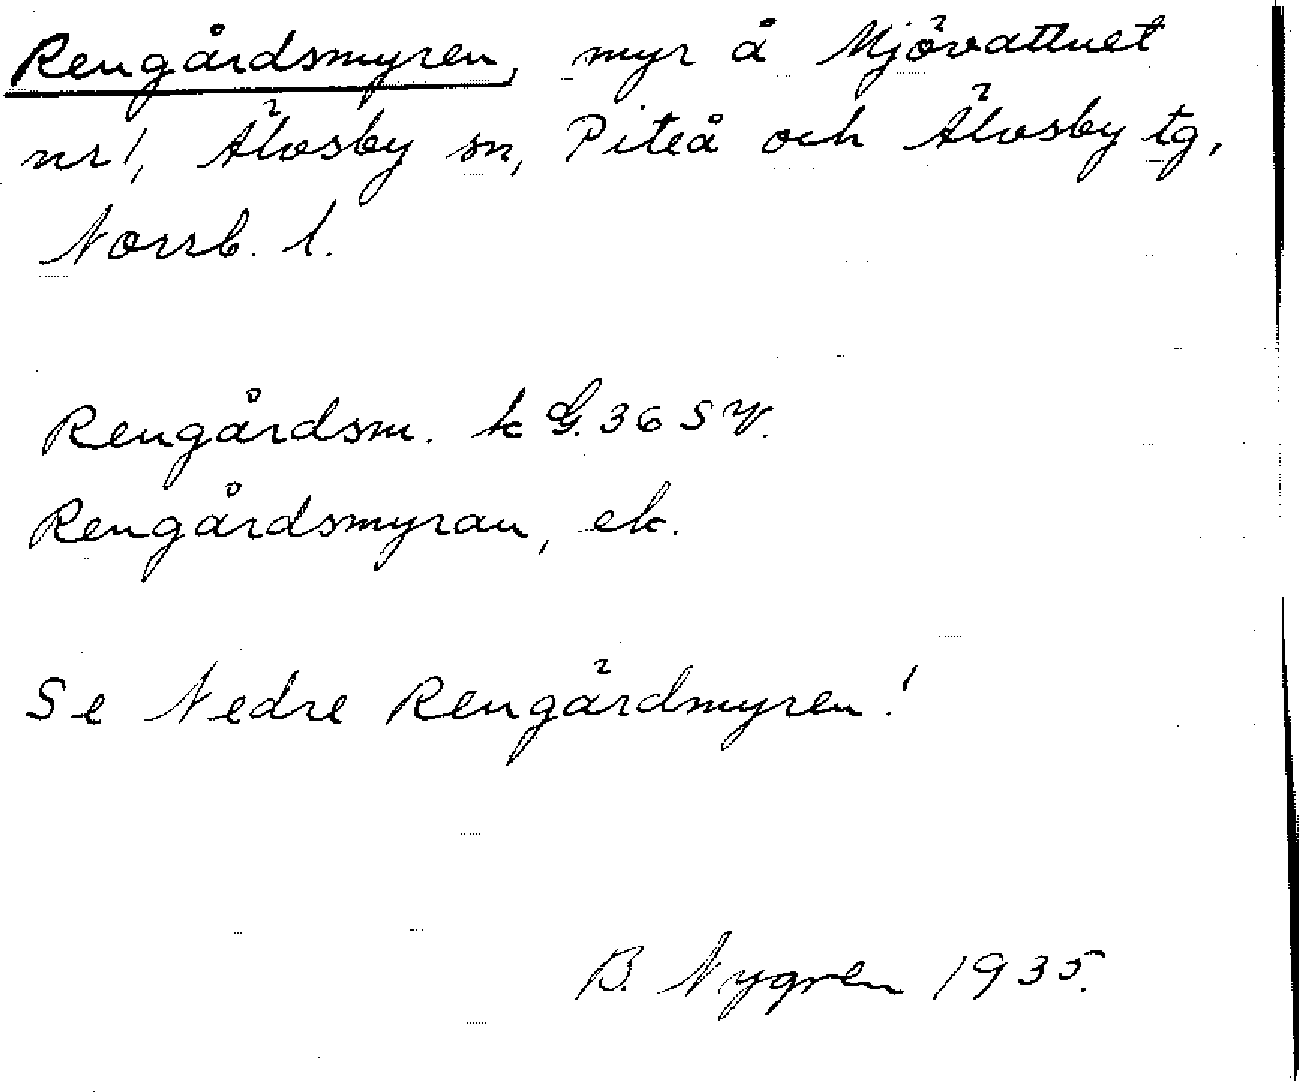 Rengårdsmyren, myr å Mjövattnet
nr 1, Älvsby sn, Piteå och Älvsby tg,
Norrb. l.
Rengårdsm. k G. 36 SV.
Rengårdsmyran, ek.
Se Nedre Rengårdmyren!
B. Nygren 1935.